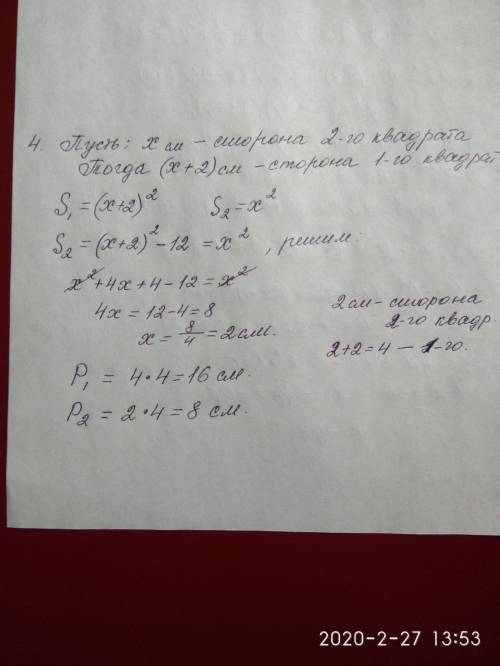 4. Пусть: x см – сторона 2-го квадрата
Тогда (x+2) см – сторона 1-го квадрат
S₁ = (x+2)² S₂ = x²
S₂ = (x+2)² - 12 = x², решим:
x² + 4x + 4 - 12 = x²
4x = 12 - 4 = 8
x = 8/4 = 2 см.
2 см – сторона
2-го квадр.
2+2=4 – 1-го.
P₁ = 4·4 = 16 см.
P₂ = 2·4 = 8 см.
2020-2-27 13:53